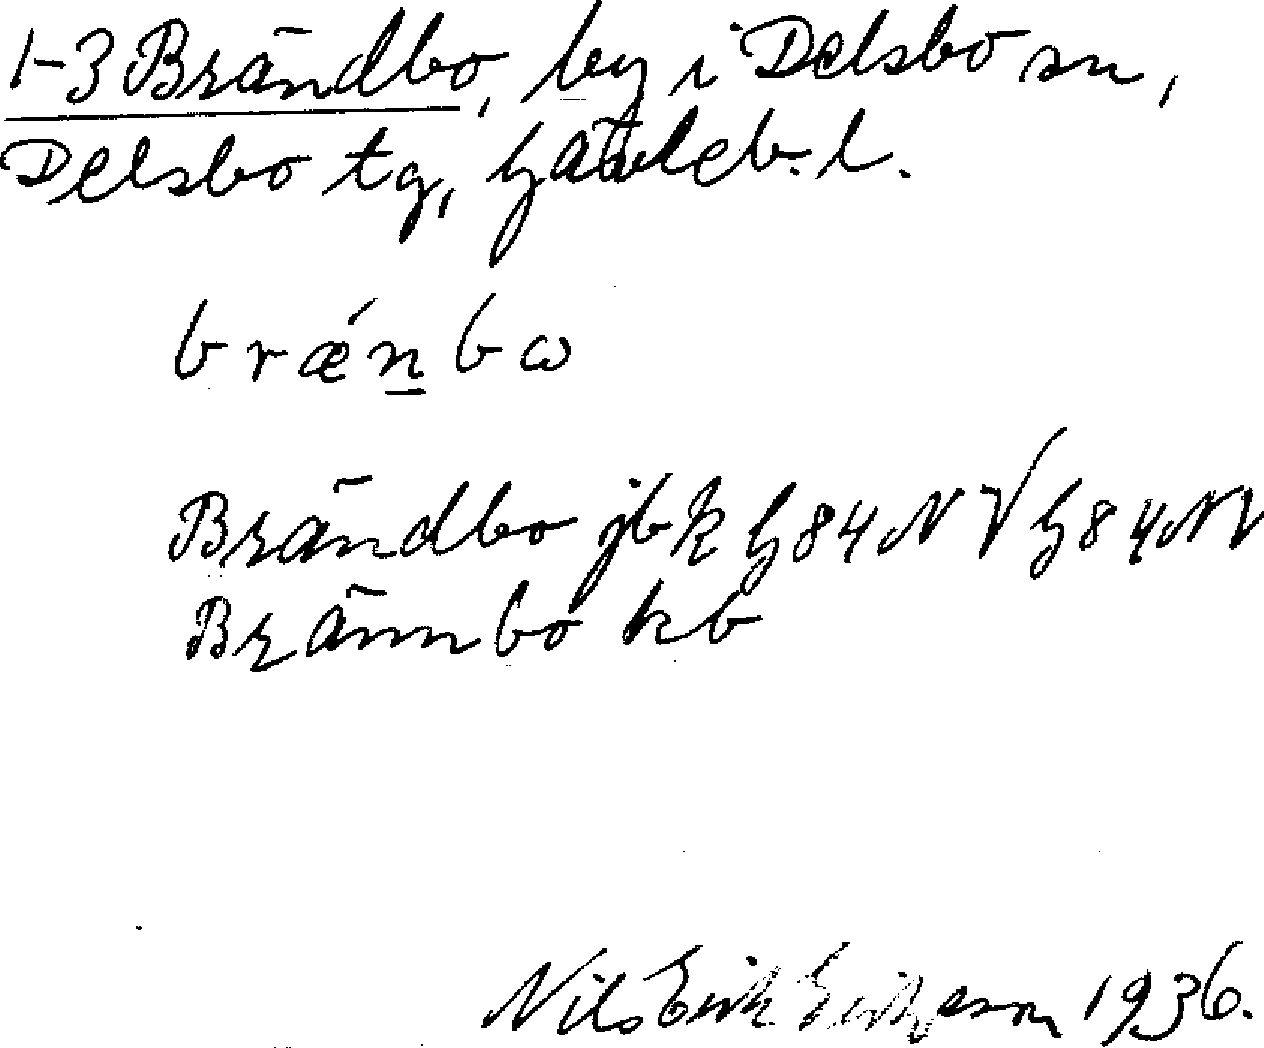 1-3 Brändbo, by i Delsbo sn,
Delsbo tg, Gävleb. l.
brǽn̲bω
Brändbo jbk G84NV G84NV
Brännbo kb
Nils Erik Eriksson 1936.